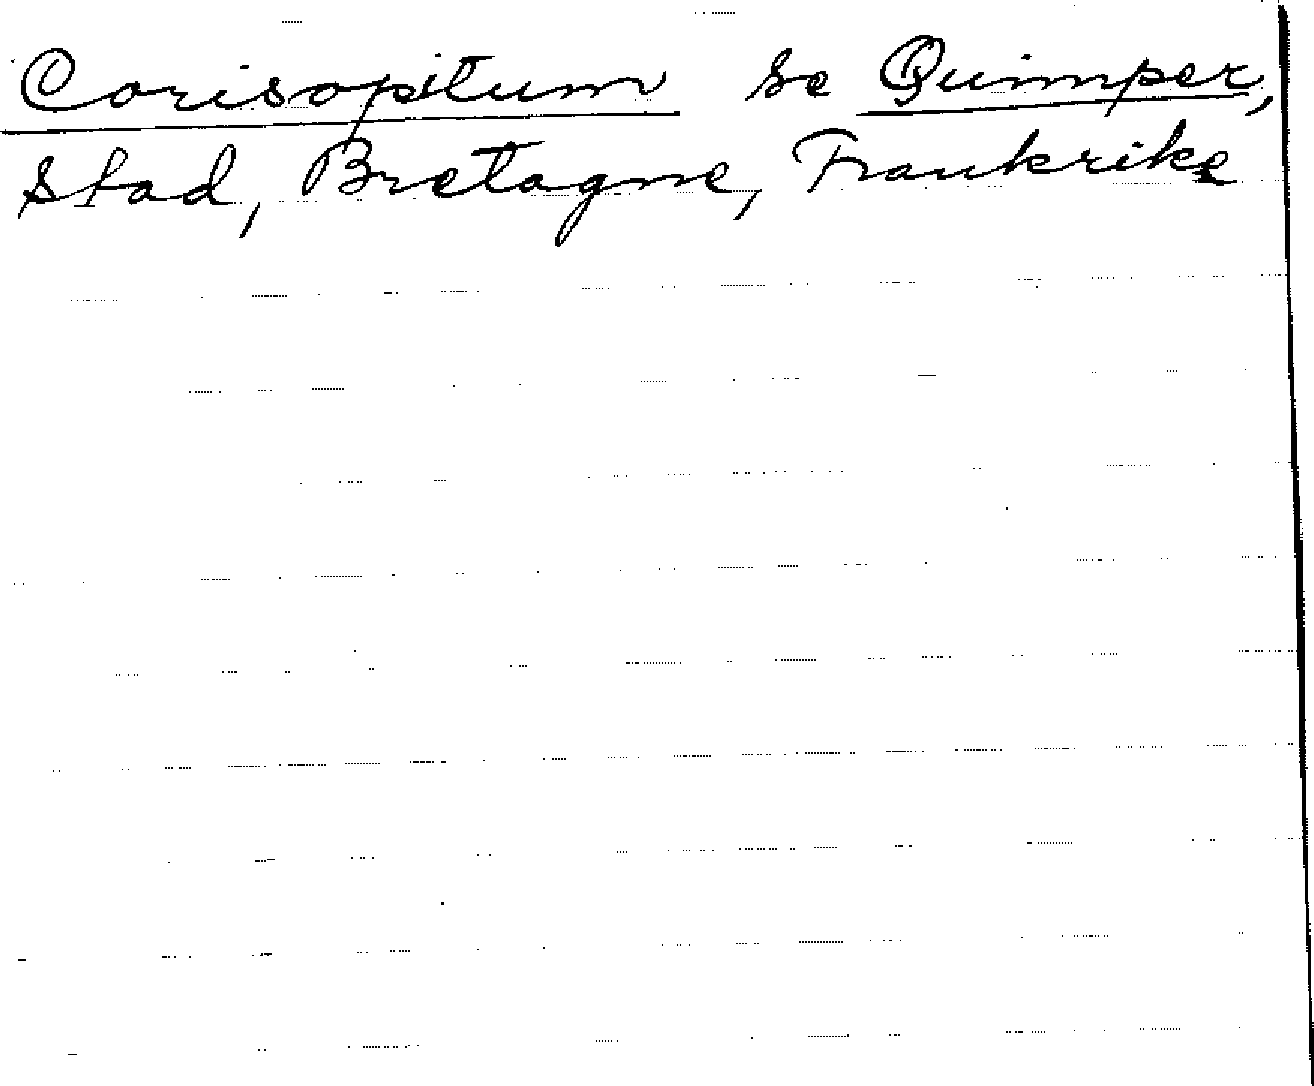 Corisopitum se Quimper,
Stad, Bretagne, Frankrike